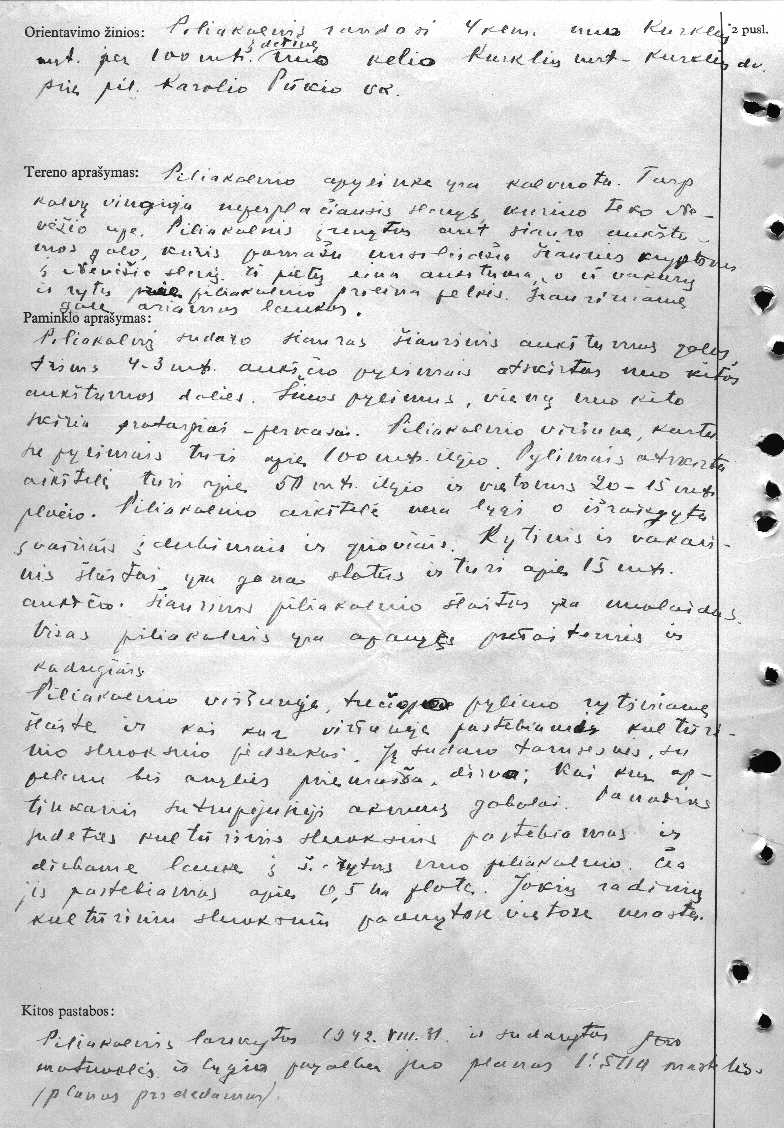 Orientavimo žinios: Piliakalnis randasi 4 klm. nuo Kurklių 2 pusl.
mst. per 100 mt. į dešinę nuo kelio Kurklių mst - Kurklių dv.
prie pil. Karolio Pūkio vk.
Tereno aprašymas: Piliakalnio apylinkė yra kalvuota. Tarp
kalvų vingiuoja neperplačiausis slėnys, kuriuo teka
upė. Piliakalnis įrengtas ant siauro aukštu-
mos galo, kuris pamažu nusileidžia šiaurės kryptimi
į slėnį. Iš pietų eina aukštuma, o iš vakarų
ir rytų piliakalnio prieina pelkės. Šiauriniame
gale ariamas laukas.
Paminklo aprašymas:
Piliakalnį sudaro siauras šiaurinis aukštumos galas,
trims 4-3 mt. aukščio pylimais atskirtas nuo kitos
aukštumos dalies. Šiuos pylimus, vieną nuo kito
skiria protarpiai - perkasai. Piliakalnio viršūnė, kartu
su pylimais turi apie 100 mt. ilgio. Pylimais atskirta
aikštelė turi apie 50 mt. ilgio ir vietomis 20-15 mt.
pločio. Piliakalnio aikštelė nėra lygi o išraižyta
įvairiais įdubimais ir grioviais. Rytinis ir vakari-
nis šlaitai yra gana status ir turi apie 15 mt.
aukščio. Šiaurinis piliakalnio šlaitas yra nuolaidus.
Visas piliakalnis yra apaugęs ir
kadugiais
Piliakalnio viršūnėje, trečiojo pylimo rytiniame
šlaite ir kai kur viršūnėje pastebiamas kultūri-
nio sluoksnio pėdsakai. Jį sudaro tamsesnė, su
pelenu bei anglies priemaiša, dirva; kai kur ap-
tinkami sutrupėjusieji akmenų gabalai. Panašios
sudėties kultūrinis sluoksnis pastebiamas ir
dirbame lauke į š. rytus nuo piliakalnio. Čia
jis pastebiamas apie 0,5 ha plote. Jokių radinių
kultūriniu sluoksniu padengtose vietose nerasta.
Kitos pastabos:
Piliakalnis lankytas 1942.VIII.31. ir sudarytas
matuoklės ir lygio pagalba jo planas 1:500 mastelio.
/planas pridedamas/.